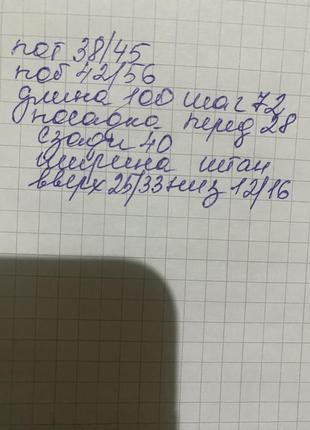 пот 38/45
поб 42/56
длина 100 шаг 72
посадка перед 28
сзади 40
ширина штан
вверх 25/33 низ 12/16